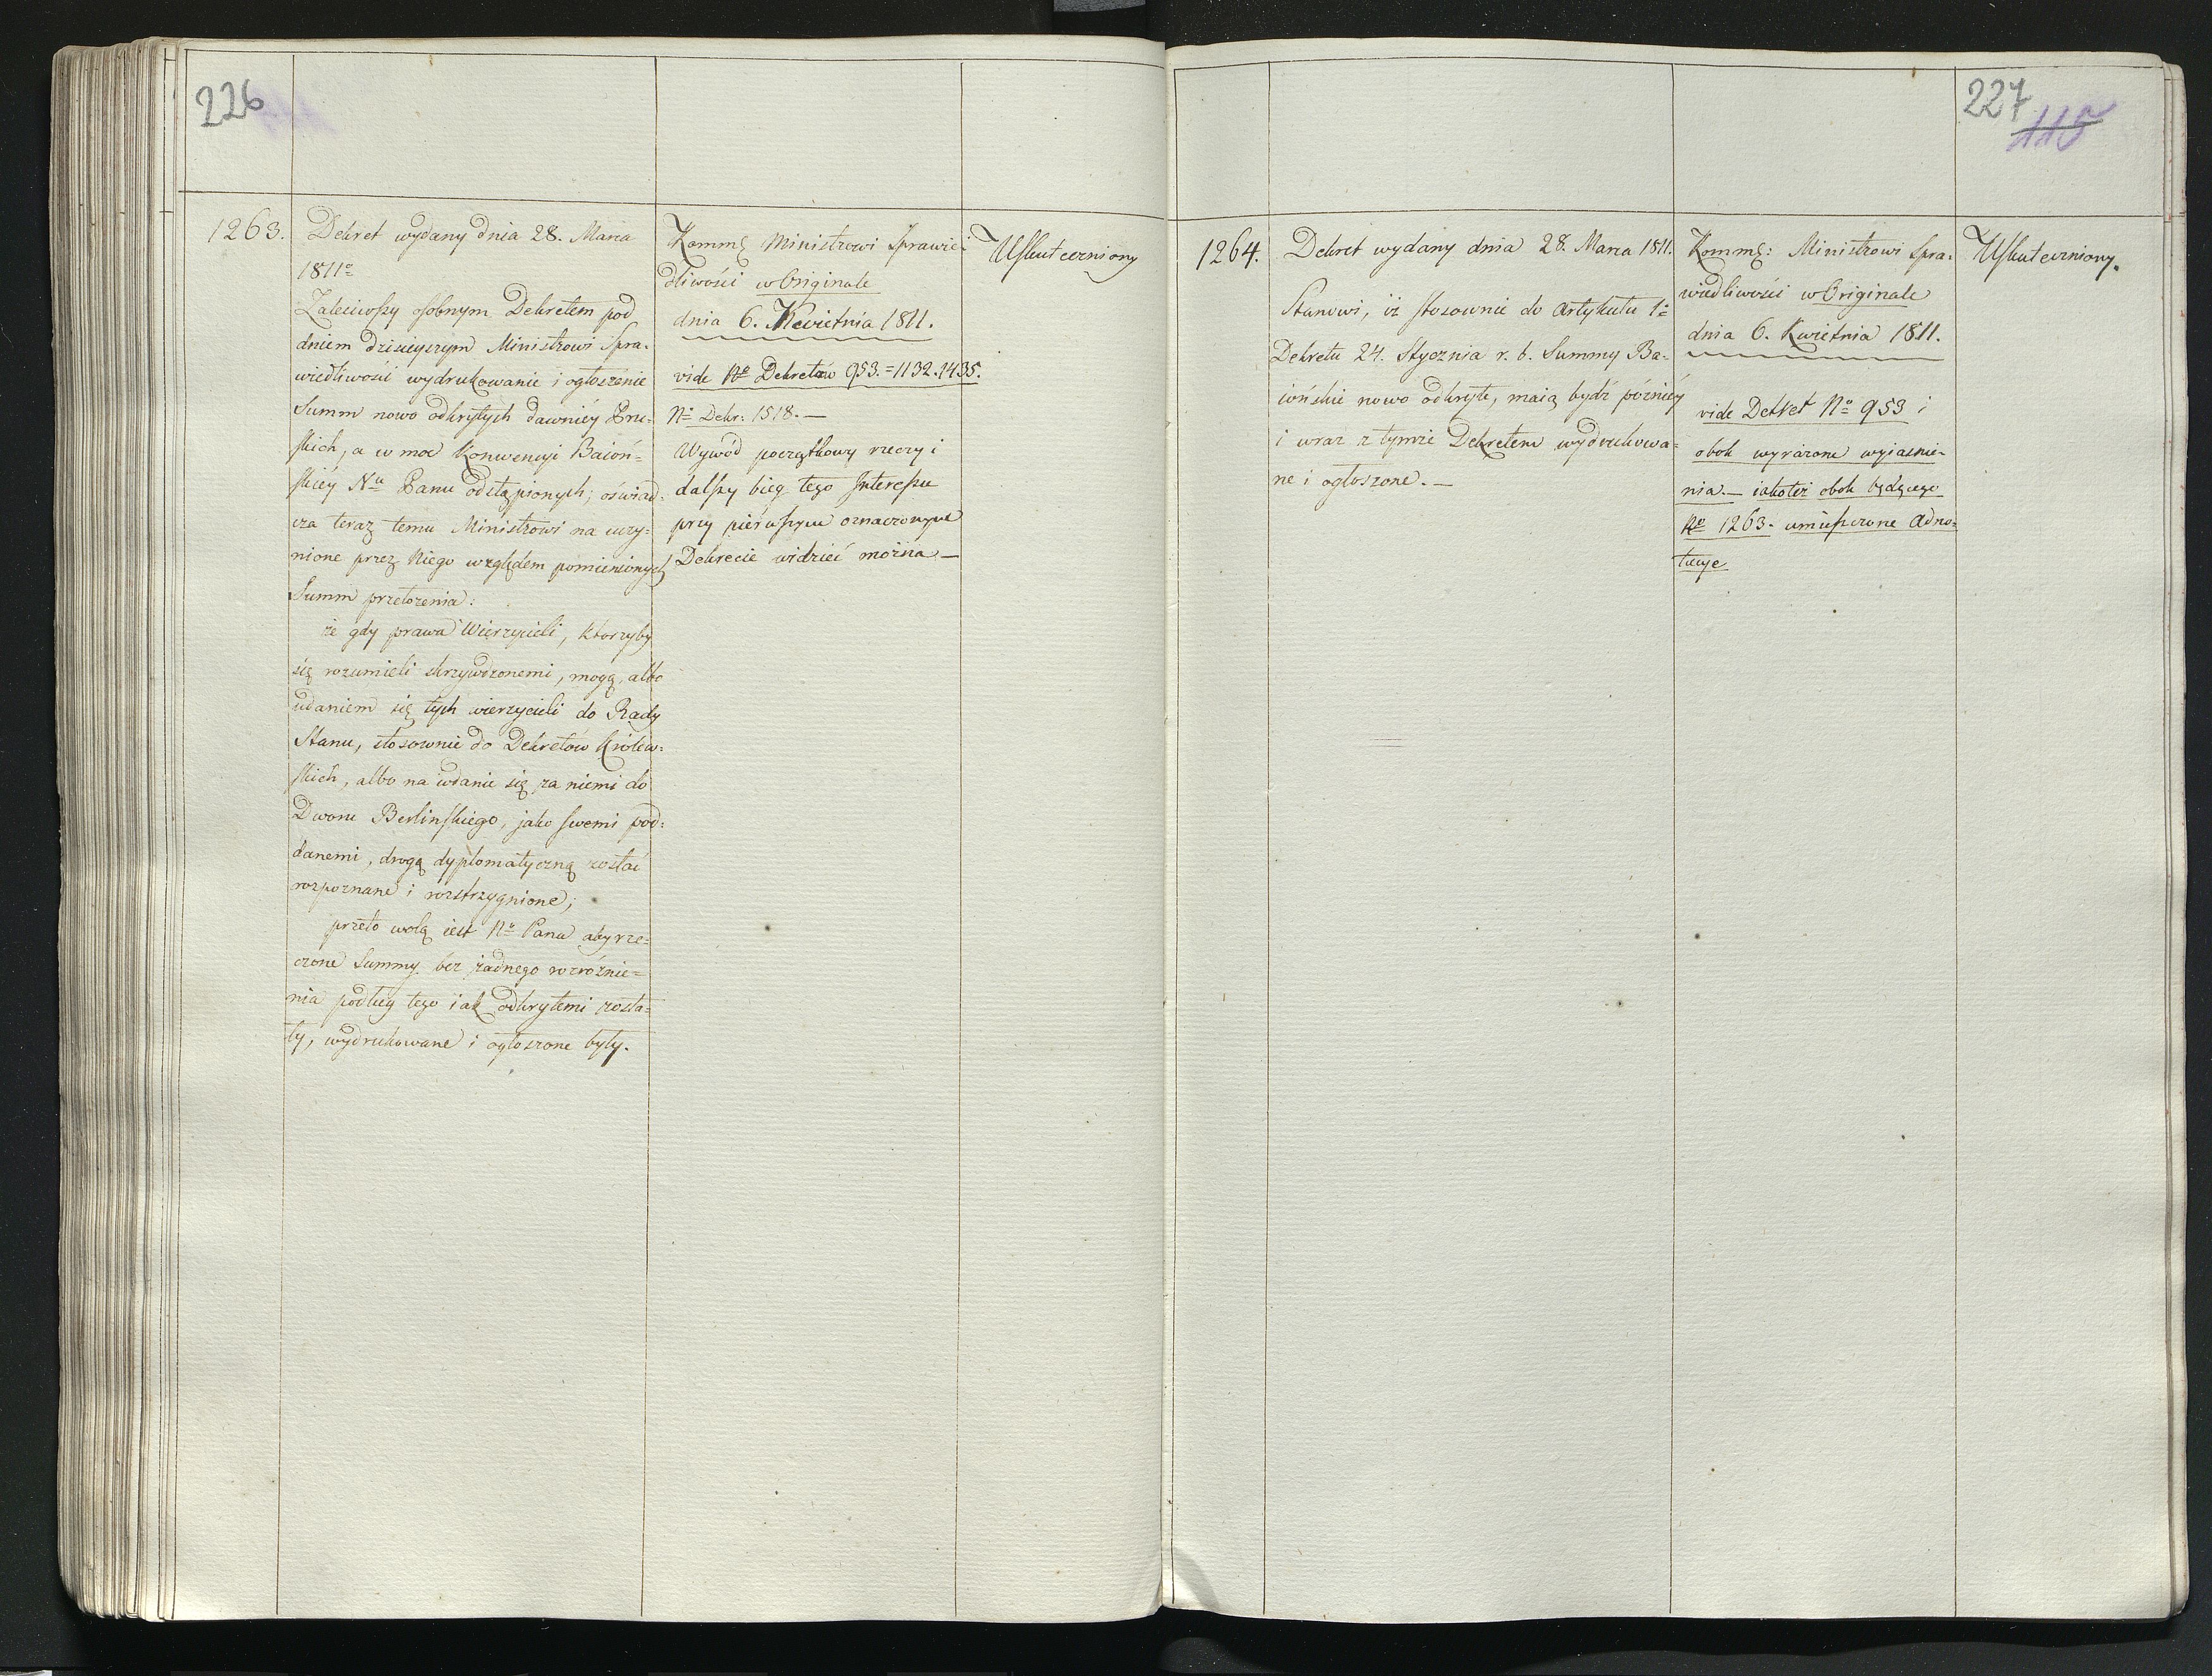 226
1263.
Dekret wydany dnia 28. Marca
1811o
Zaleciwszy osobnym Dekretem pod
dniem dzisieyszym Ministrowi Spra-
wiedliwości wydrukowanie i ogłoszenie
Summ nowo odkrytych dawniéy Pru-
skich, a w moc Konwencyi Baioń=
skiéy Nu Panu odstąpionych; oświad-
cza teraz temu Ministrowi na uczy-
nione przez Niego względem pomienionych
Summ przełożenia:
że gdy prawa Wierzycieli, którzyby
się rozumieli skrzywdzonemi, mogą, albo
udaniem się tych wierzycieli do Rady
Stanu, stosownie do Dekretów Królew-
skich, albo na wdanie się za niemi do
Dworu Berlinskiego, jako swemi pod-
danemi, drogą dyplomatyczną zostać
rozpoznane i rozstrzygnione;
przeto wolą iest No Pana aby rze=
czone Summy bez żadnego rozróżnie=
nia podług tego iak odkrytemi zosta=
ły, wydrukowane i ogłoszone były.
Kommę Ministrowi Sprawie-
dliwości w Originale
dnia 6. Kwietnia 1811.
vide No Dekretów 953.=1132.1435.
No Dekr: 1518.—
Wywód początkowy rzeczy i
dalszy bieg tego Interessu
przy pierwszym oznaczonym
Dekrecie widzieć można—
Uskuteczniony
227
115
1264.
Dekret wydany dnia 28. Marca 1811.
Stanowi, iż stosownie do Artykułu 1o
Dekretu 24. Stycznia r. b. Summy Ba-
iońskie nowo odkryte, maią bydź późniéy
i wraz z tymże Dekretem wydrukowa=
ne i ogłoszone.—
Kommę: Ministrowi Spra-
wiedliwości w Originale
dnia 6. Kwietnia 1811.
vide Dekret No 953 i
obok wyrażone wyiaśnie-
nia.— iakoteż obok będącego
No 1263. umieszczone Adno-
tacye
Uskuteczniony.